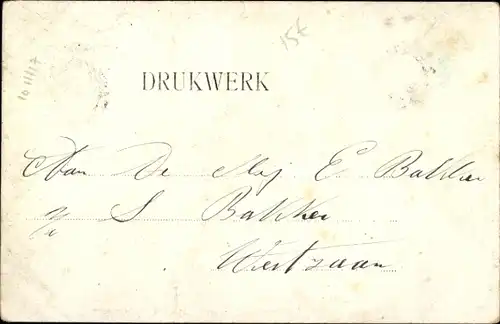 15f
10 11/17
DRUKWERK
Aan De Mej E Bakker
p/a S Bakker
Westzaan